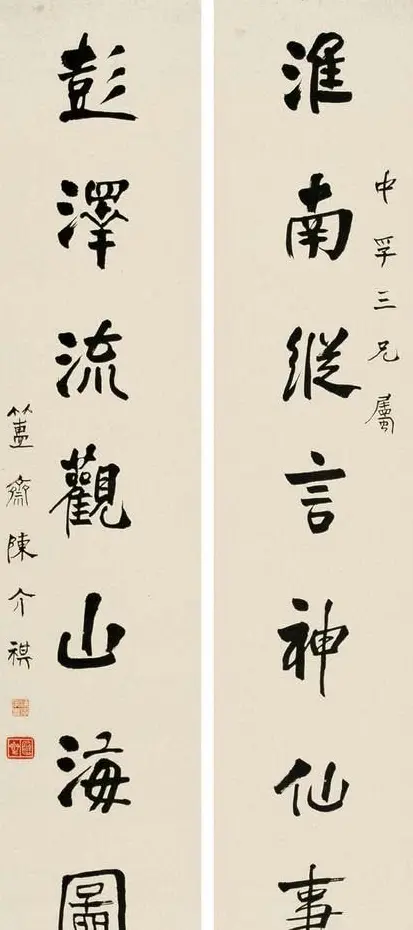 淮南縱言神仙事
中孚三兄屬
彭澤流觀山海圖
簠齋陳介祺